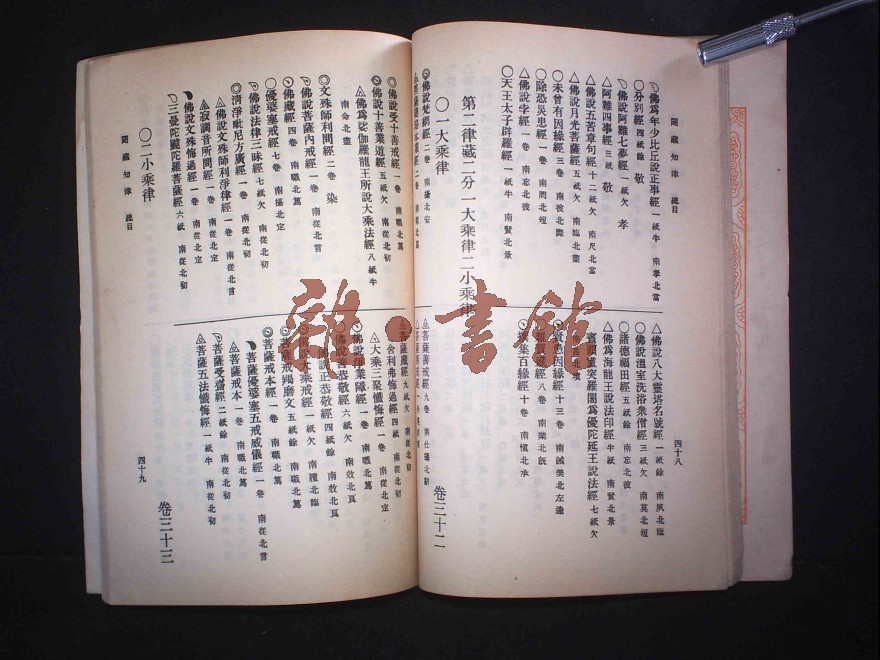 閱藏知津 總目
四十八
佛為年少比丘說正事經 一紙半 南孝北當
○分別經 四紙餘 敬
佛說阿難七夢經 一紙欠 孝
△阿難四事經 三紙 敬
△佛說五苦章句經 十二紙欠 南尺北當
△佛說月光菩薩經 五紙欠 南臨北盡
○未曾有因緣經 三卷 南彼北靡
○除恐災患經 一卷 南罔北短
○佛說孛經 一卷 南忘北彼
○天王太子辟羅經 一紙半 南賢北景
△佛說八大靈塔名號經 一紙餘 南夙北臨
○佛說溫室洗浴眾僧經 三紙欠 南莫北短
○諸德福田經 五紙餘 南忘北彼
△佛為海龍王說法印經 半紙 南賢北景
賓頭盧突羅闍為優陀延王說法經 七紙欠
十三卷 南誠美北左達
八卷 南樂北旣
集百緣經 十卷 南愼北承
第二律藏二分一大乘律二小乘律
○一大乘律
卷三十二
佛說梵網經 二卷 南攝北安
△菩薩善戒經 九卷 南仕攝北辭
◎佛說受十善戒經 一卷 南職北篤
佛說十善業道經 五紙欠 南從北初
△佛為娑伽羅龍王所說大乘法經 八紙半
南命北盡
◎文殊師利問經 二卷 染
佛說菩薩內戒經 一卷 南從北言
佛藏經 四卷 南職北篤
○優婆塞戒經 七卷 南攝北定
佛說法律三昧經 七紙欠 南從北初
◎清淨毗尼方廣經 一卷 南從北初
△佛說文殊師利淨律經 一卷 南從北言
△寂調音所問經 一卷 南從北定
佛說文殊悔過經 一卷 南從北定
三曼陀颰陀羅菩薩經 六紙 南從北初
菩薩藏經 九紙欠 南從北初
舍利弗悔過經 四紙 南從北初
△大乘三聚懺悔經 一卷 南從北定
佛說淨業障經 一卷 南職北篤
佛說善恭敬經 六紙欠 南效北
說正恭敬經 四紙餘 南效北
佛說大乘戒經 一紙欠 南履北臨
菩薩戒羯磨文 五紙餘 南職北篤
菩薩戒本經 一卷 南職北篤
菩薩優婆塞五戒威儀經 一卷 南從北言
菩薩戒本 一卷 南職北篤
菩薩受齋經 二紙餘 南從北初
菩薩五法懺悔經 一紙半 南從北初
○二小乘律
卷三十三
閱藏知津 總目
四十九
雜·書館